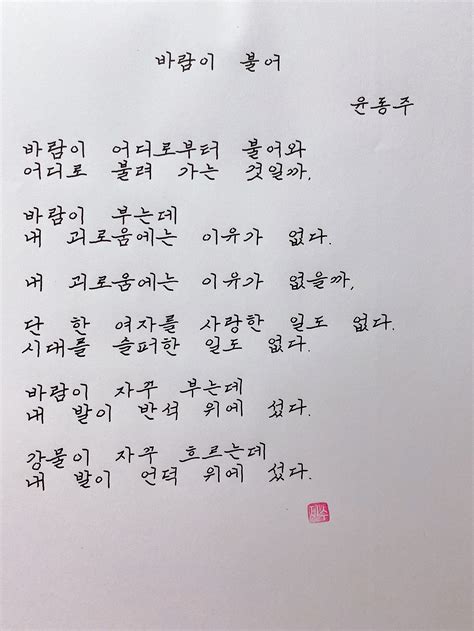 바람이 불어
윤동주
바람이 어디로부터 불어와
어디로 불려 가는 것일까,
바람이 부는데
내 괴로움에는 이유가 없다.
내 괴로움에는 이유가 없을까,
단 한 여자를 사랑한 일도 없다.
시대를 슬퍼한 일도 없다.
바람이 자꾸 부는데
내 발이 반석 위에 섰다.
강물이 자꾸 흐르는데
내 발이 언덕 위에 섰다.